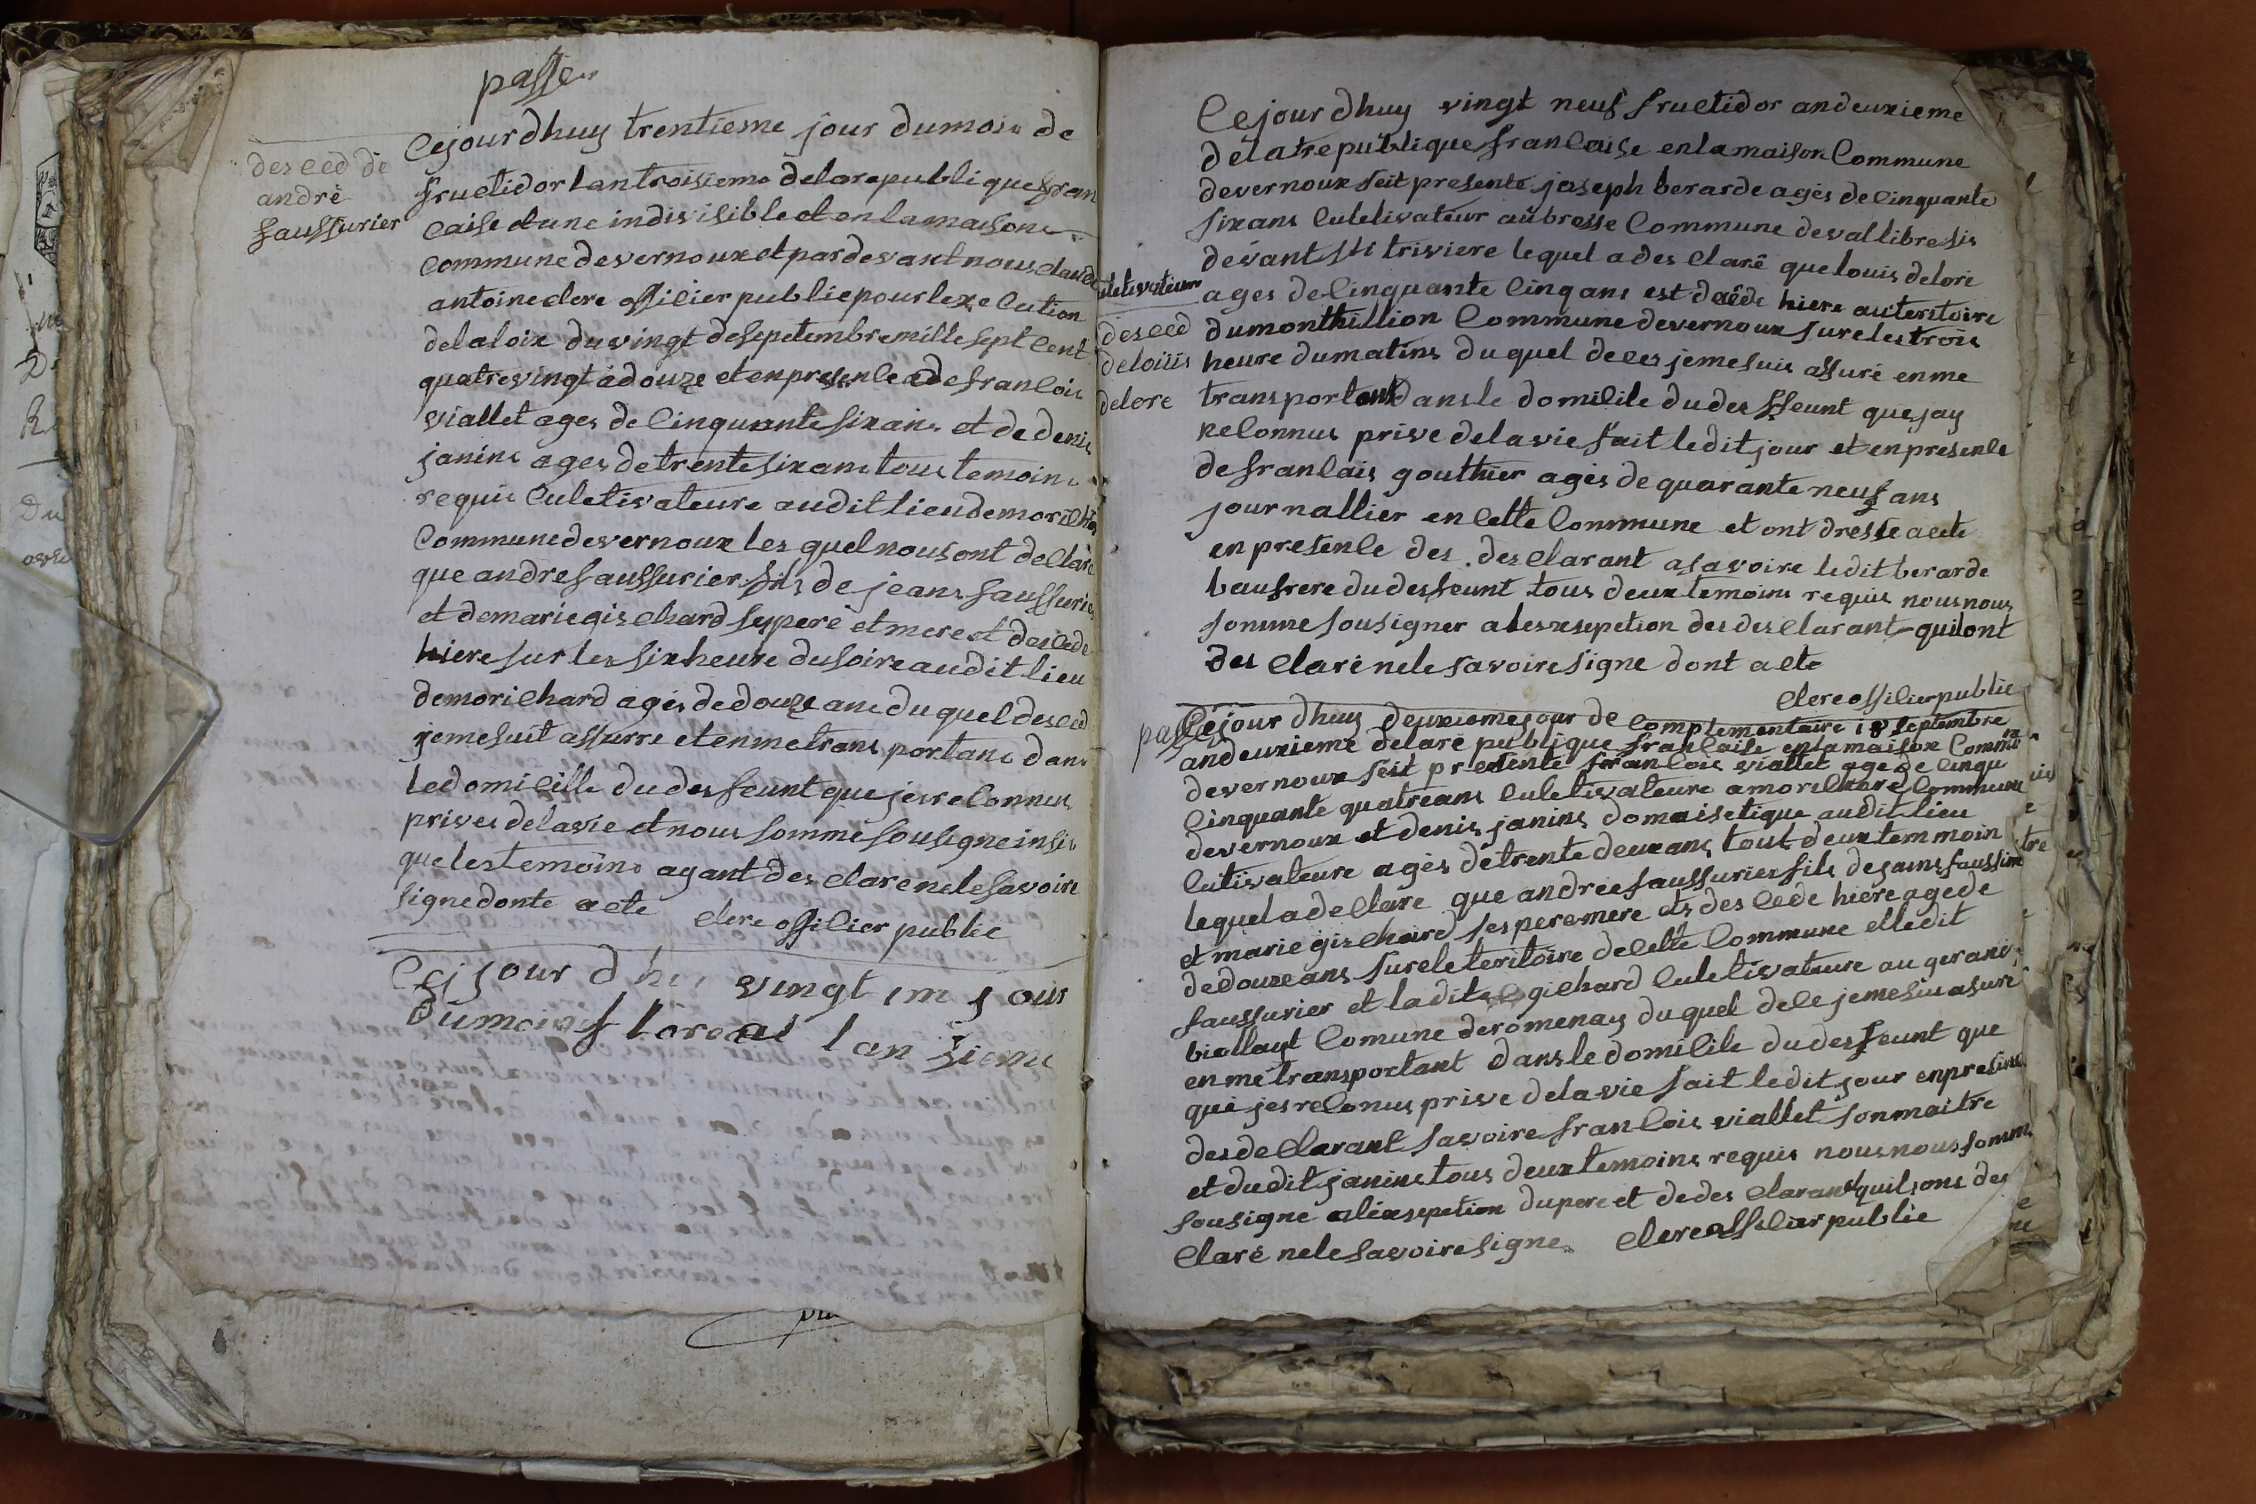 passe
Cejourdhuy trentiesme jour dumois de
fructidor lantroisieme delarepubliquefran
caise et une indivisible et en lamaisone
Commune devernoux et pardevant nous claude
antoine clere officier public pour lexecution
delaloix du vingt desepetembre mille sept cent
quatrevingt adouze et enpresence ade francois
viallet ages de cinquante sixans et de denis
janins ages detrente sixans tous temoins
requis culetivateure audit lieu demorichard
Commune devernoux les quel nous ont declare
que andre faussurier fils de jeans faussurier
et demarie gischard ses peré et mere et decede
hiere sur les sixheure dusoire audit lieu
demorichard agés dedouze ans du quel desced
jemesuit assurre et enmetransportant dans
ledomicille dudesfeunt que jesreconnus
prives delavie et nous somme sousigne insis
que les temoins ayant desclare nele savoire
signe donte acte clere officier public
desced de
andré
faussurier
Cej jour dhui vingt jour
dumois floreal lan sieme
Cejourdhuy vingt neuf fructidor andeuxieme
delatrepublique francaise enlamaison Commune
devernoux seit presenté joseph berarde agés de cinquante
sixans culetivateur aubresse Commune devallibre sis
devant st triviere lequel a des claré que louis delore
culetivateur
ages decinquante cinq ans est daéde hiere auteritoire
dumonthillion Commune devernoux sureles trois
heure dumatins duquel deces jemesuis assuré enme
transportant dansle domicile dudesfeunt que jay
reconnus prive delavie fait ledit jour et enpresence
defrancais gouthier agés de quarante neuf ans
journallier encette Commune et ont dresse acete
enpresence des desclarant asavoire ledit berarde
beaufrere dudesfeunt tous deux temoins requis nous nous
somme sousigner alesxsepetion des desclarant quilont
des claré nele savoire signe dont acte
clere officier public
desced
delouis
delore
passe
Cejour dhuy deuxiemejour de complementaire 18 septembre
andeuxieme delaré publique francaise enlamaison Commune
devernoux seit presente francois viallet age de cinqu
cinquante quatreans culetivateure amorichard Commune
devernoux et denis janins domaisetique audit lieu
cutivateure agés detrente deuxans tout deux temmoin
lequel adeclare que andree faussurier fils dejeans faussurie
et marie gischard ses pere mere ets des cede hiere agede
dedouze ans sureleteritoire decette Commune elledit
faussurier et ladite gichard culetivateure au gerand
biollayt Comune deromenay duquel dece jemesui asure
en me transportant dansle domicile dudesfeunt que
que jesreconus prive delavie fait ledit jour enpresence
desdeclarant savoire francois viallet son maitre
et dudit janins tous deux temoins requis nous nous somme
sousigne alexsepetion dupere et dedes clarant quilsons des
claré nele savoire signe clere officier public